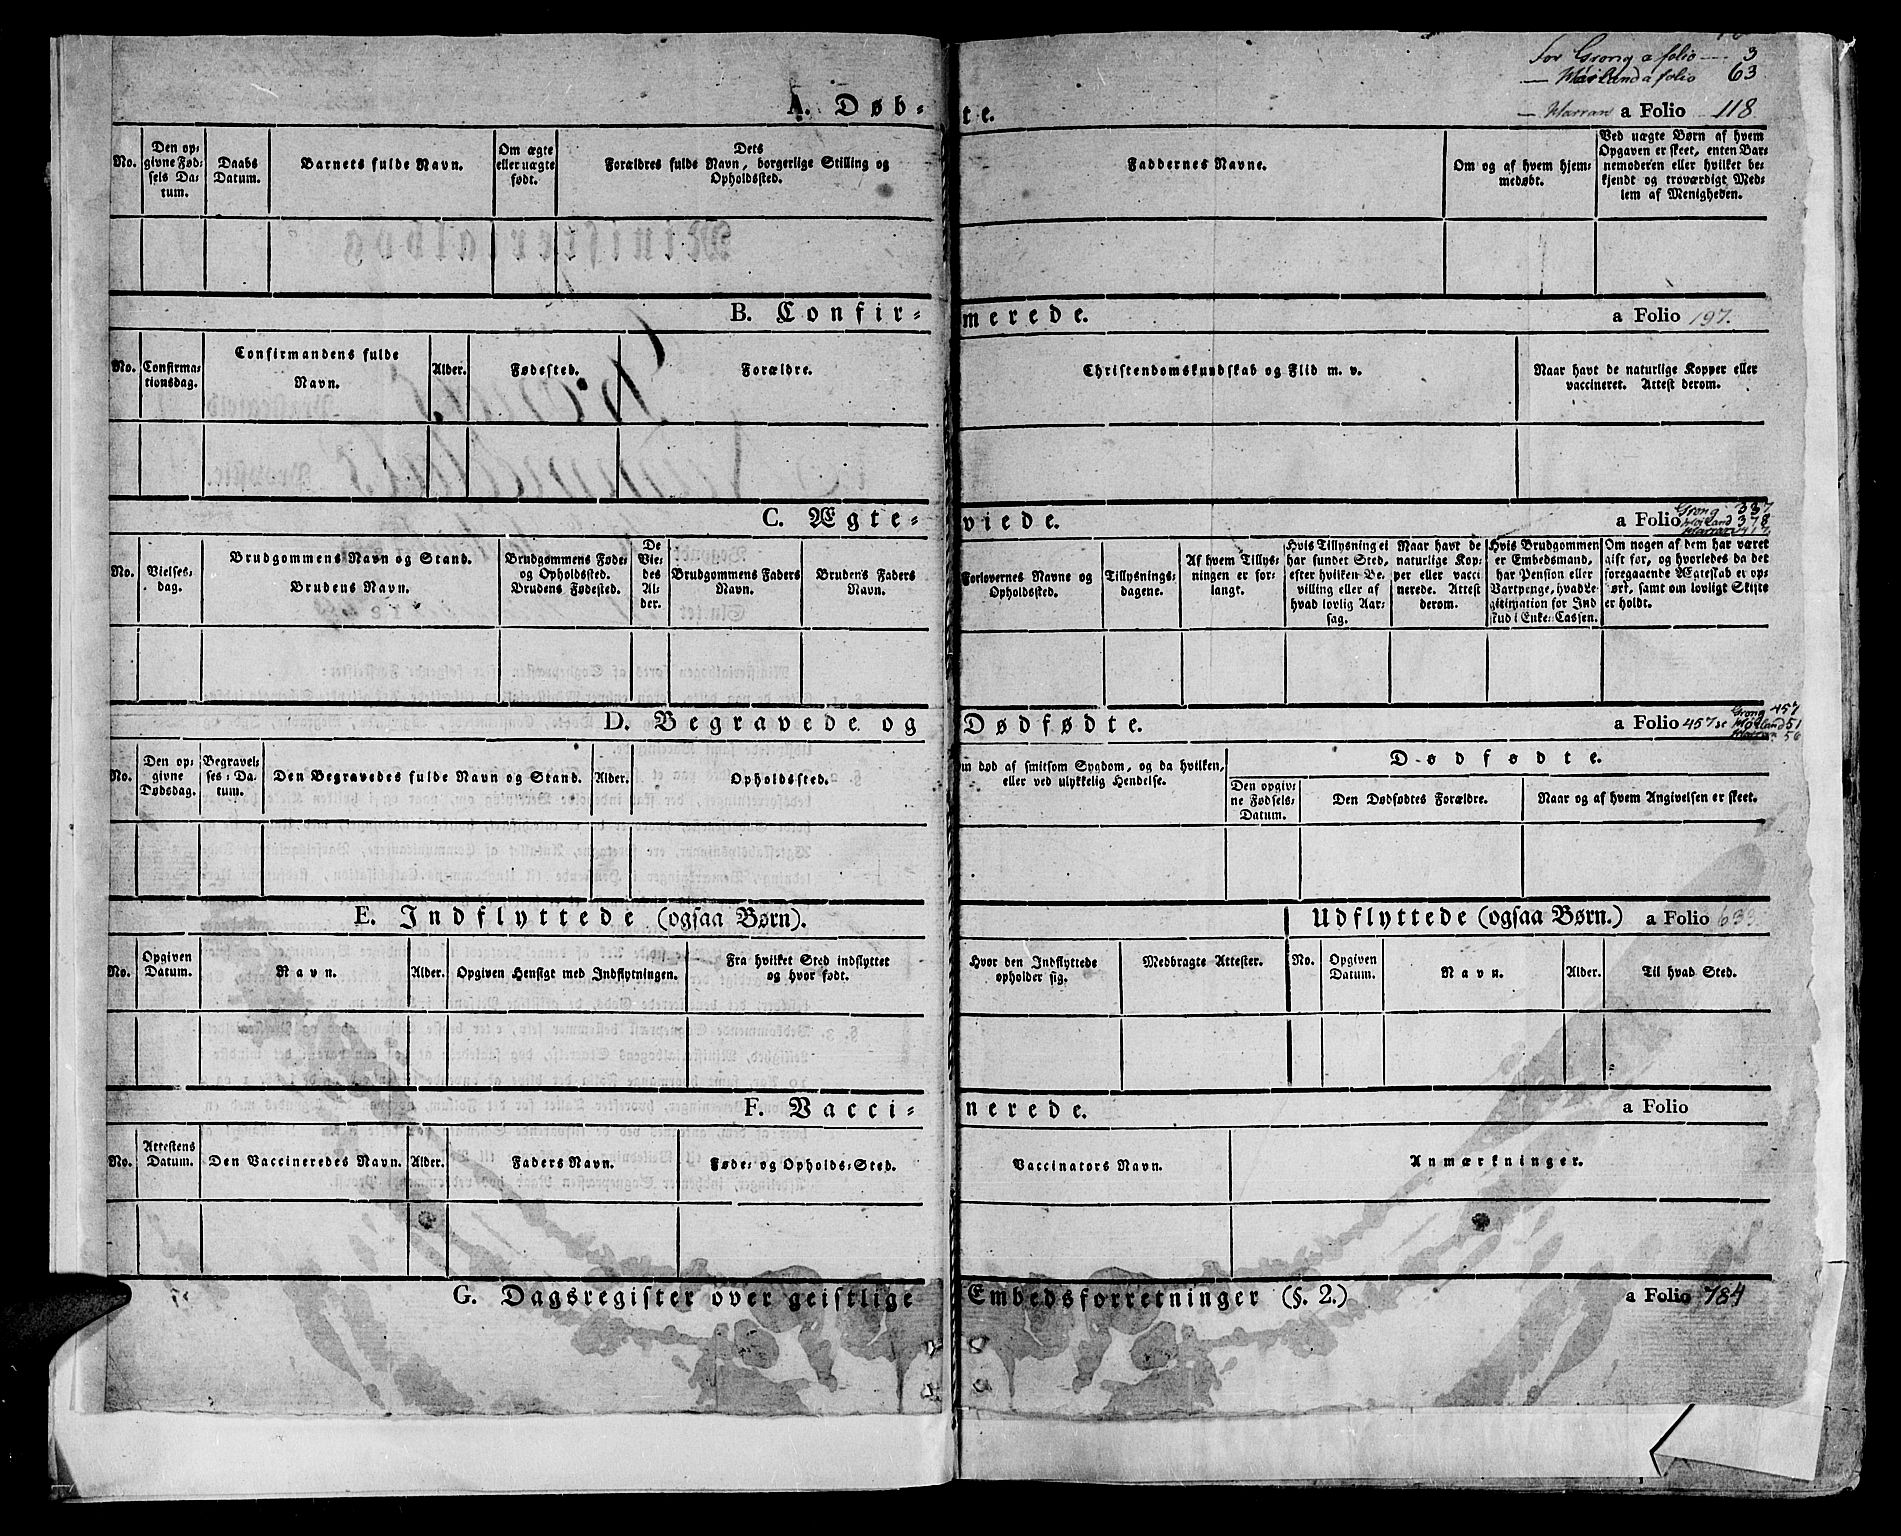 For Grong a folio — 3
— Høiland a folio 63
A. Døb-te. — Harran a Folio 118
No.
Den op-
givne Fød-
sels Da-
tum.
Daabs
Datum.
Barnets fulde Navn.
Om ægte
eller uægte
født.
Dets
Forældres fulde Navn, borgerlige Stilling og
Opholdssted.
Faddernes Navne.
Om og af hvem hjem-
medøbt.
Ved uægte Børn af hvem
Opgaven er skeet, enten Bar-
nemoderen eller hvilket be-
kjendt og troværdigt Med-
lem af Menigheden.
B. Confir-merede. a Folio 197.
No.
Confirma-
tionsdag.
Confirmandens fulde
Navn.
Alder.
Fødested.
Forældre.
Christendomskundskab og Flid m. v.
Naar havt de naturlige Kopper eller
vaccineret. Attest derom.
C. Ægte-viede. a Folio
Grong 337
Høiland 378
Harran 417
No.
Vielses-
dag.
Brudgommens Navn og Stand.
Brudens Navn.
Brudgommens Føde-
og Opholdssted.
Brudens Fødested.
De
Vie-
des
Al-
der.
Brudgommens Faders
Navn.
Brudens Faders
Navn.
Forlovernes Navne og
Opholdssted.
Tillysnings-
dagene.
Af hvem Tillys-
ningen er for-
langt.
Hvis Tillysning ei
har fundet Sted,
efter hvilken Be-
villing eller af
hvad lovlig Aar-
sag.
Naar havt de
naturlige Kop-
per eller vacci
nerede. Attest
derom.
Hvis Brudgommen
er Embedsmand,
har Pension eller
Vartpenge, hvad Le-
gitimation for Ind
skud i Enke-Cassen.
Om nogen af dem har været
gift før, og hvorledes da det
foregaaende Ægteskab er op-
hørt, samt om lovligt Skifte
er holdt.
D. Begravede og Dødfødte. a Folio 457
Grong 457
Høiland 51
Harran 56
No.
Den op-
givne
Dødsdag.
Begravel-
ses-Da-
tum.
Den Begravedes fulde Navn og Stand.
Alder.
Opholdssted.
Om død af smitsom Sygdom, og da hvilken,
eller ved ulykkelig Hendelse.
Dødfødte.
Den opgiv-
ne Fødsels-
Datum.
Den Dødfødtes Forældre.
Naar og af hvem Angivelsen er skeet.
E. Indflyttede (ogsaa Børn). Udflyttede (ogsaa Børn.) a Folio 633
No.
Opgiven
Datum.
Navn.
Alder.
Opgiven Hensigt med Indflytningen.
Fra hvilket Sted indflyttet
og hvor født.
Hvor den Indflyttede
opholder sig.
Medbragte Attester.
No.
Opgiven
Datum.
Navn.
Alder.
Til hvad Sted.
F. Vacci-nerede. a Folio
No.
Attestens
Datum.
Den Vaccineredes Navn.
Alder.
Faders Navn.
Føde- og Opholds-Sted.
Vaccinators Navn.
Anmærkninger.
G. Dagsregister over geistlige Embedsforretninger (§. 2.) a Folio 784